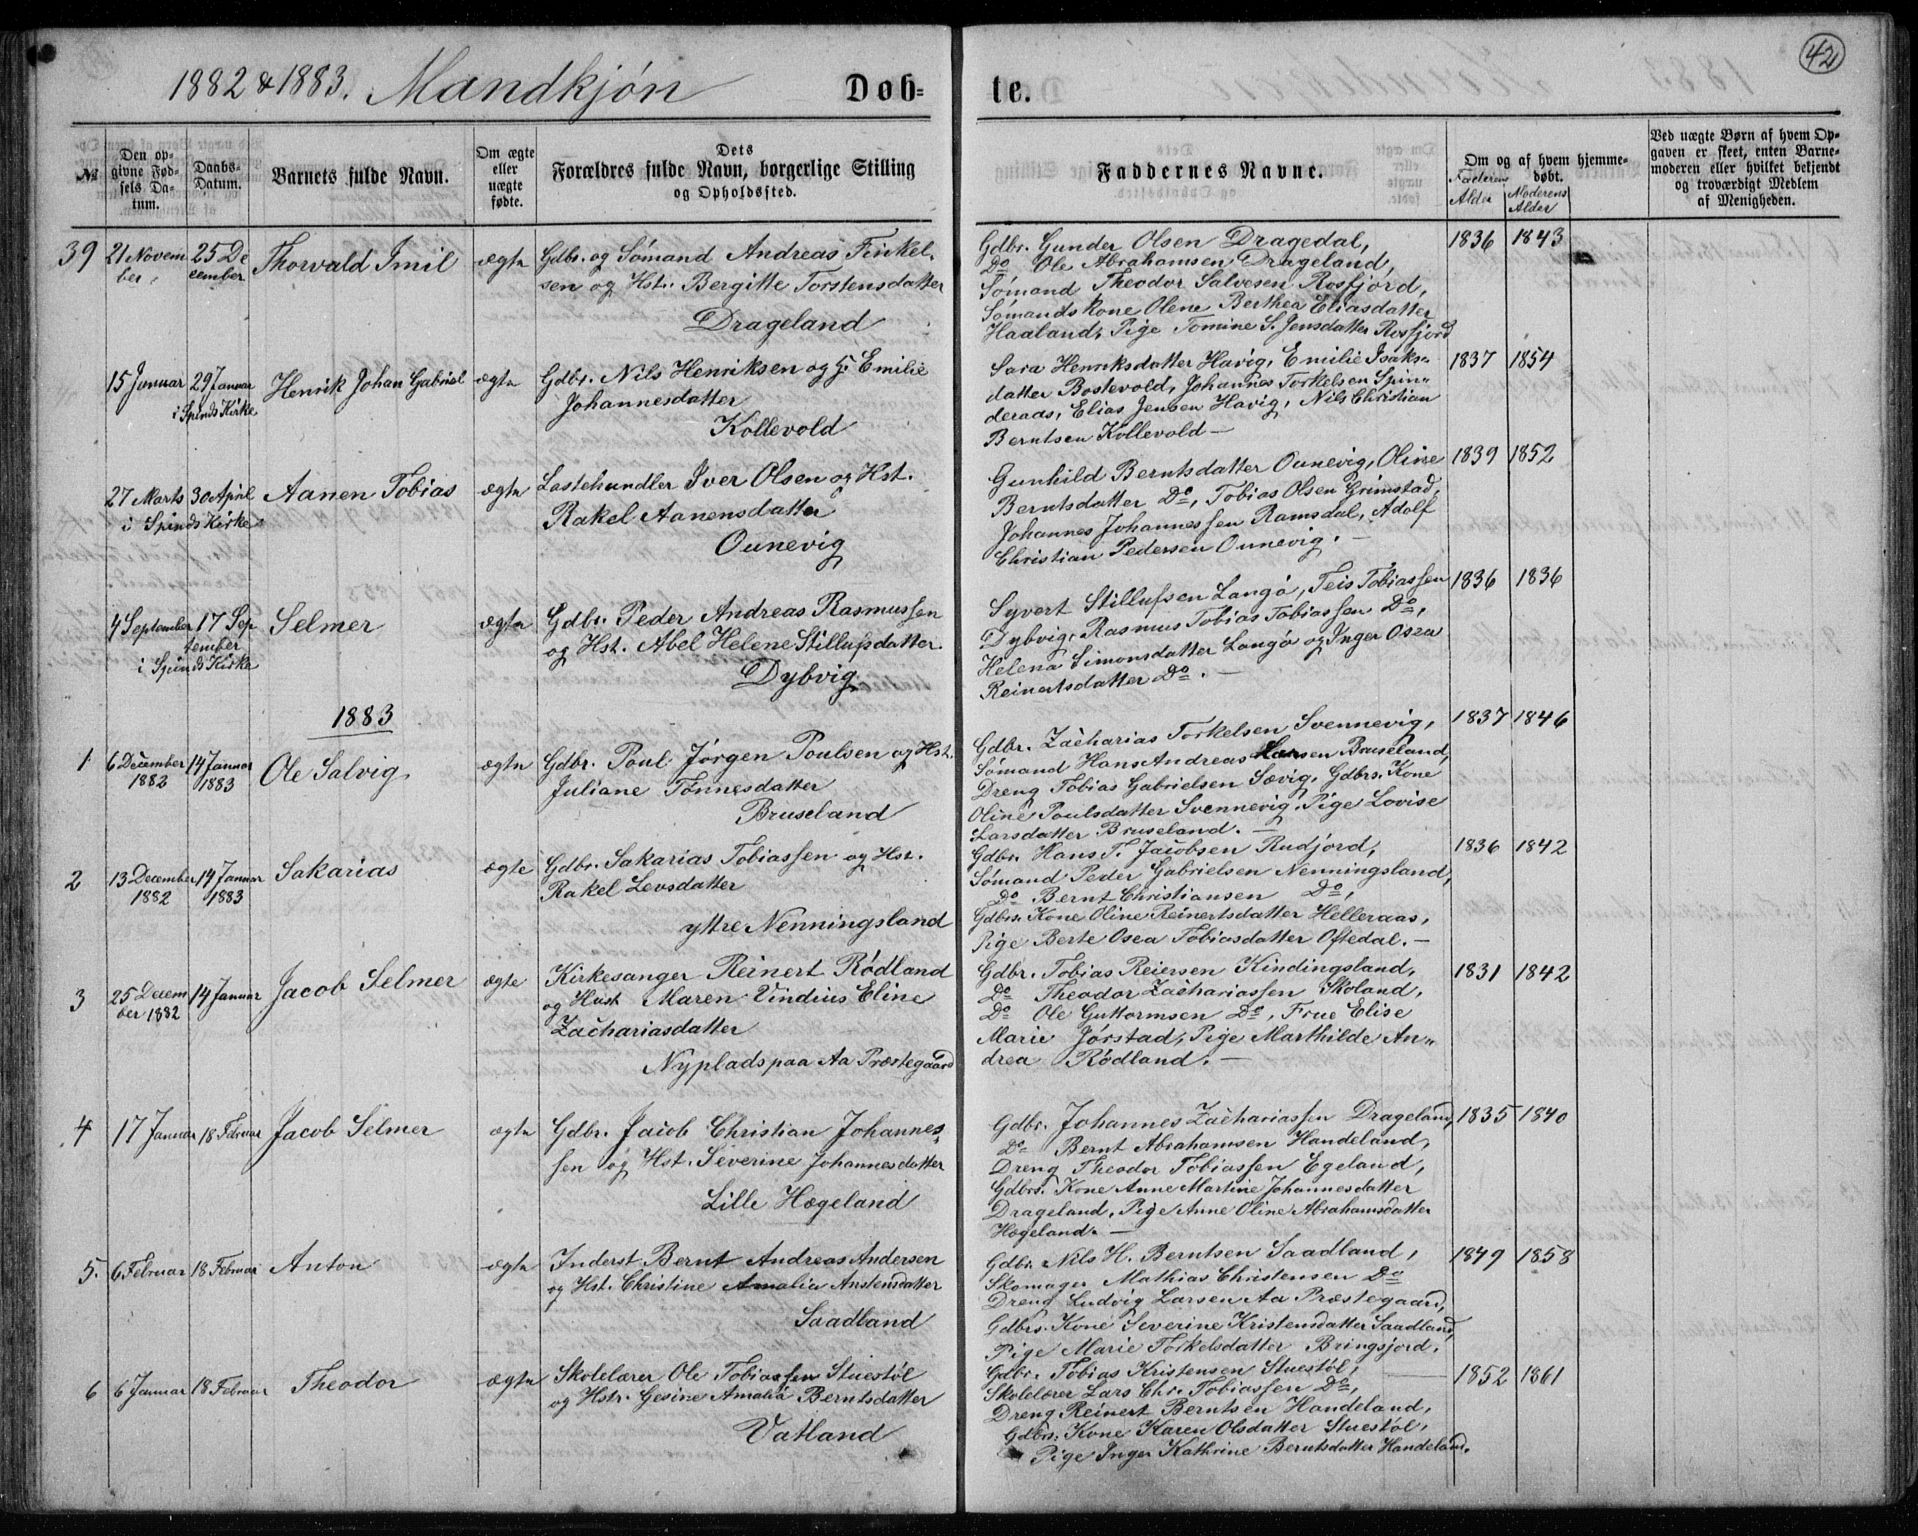 1882 & 1883. Mandkjøn Døb=te.
42
№
Den op-
givne Fød-
sels Da-
tum.
Daabs-
Datum.
Barnets fulde Navn.
Om ægte
eller
uægte
fødte.
Dets
Forældres fulde Navn, borgerlige Stilling
og Opholdssted.
Faddernes Navne.
Om og af hvem hjemme-
døbt.
Faderens
Alder
Moderens
Alder
Ved uægte Børn af hvem Op-
gaven er skeet, enten Barne-
moderen eller hvilket bekjendt
og troværdigt Medlem
af Menigheden.
39
21 Novem
ber.
25 De
cember
Thorvald Imil
ægte
Gdbr. og Sømand Andreas Finkel-
sen og Hst. Bergitte Torstensdatter
Drageland
Gdbr. Gunder Olsen Dragedal,
Do Ole Abrahamsen Drageland,
Sømand Theodor Salvesen Rosfjord,
Sømands Kone Olene Berthea Eliasdatter
Haaland, Pige Tomine S. Jensdatter Rosfjord
1836
1843
15 Januar
29 Januar
i Spinds Kirke
Henrik Johan Gabriel
ægte
Gdbr. Nils Henriksen og H. Emilie
Johannesdatter
Kollevold
Sara Henriksdatter Havig, Emilie Isaks-
datter Bostevold, Johannes Torkelsen Spin-
deraas, Elias Jensen Havig, Nils Christian
Berntsen Kollevold —
1837
1854
27 Marts
30 April
i Spinds Kirke
Aanen Tobias
ægte
Lastehandler Iver Olsen og Hst.
Rakel Aanensdatter
Ounevig
Gunhild Berntsdatter Ounevig, Oline
Berntsdatter Do, Tobias Olsen Grimstad,
Johannes Johannessen Ramsdal, Adolf
Christian Pedersen Ounevig. —
1839
1852
4 September
17 Sep
tember
i Spinds Kirke
Selmer
ægte
Gdbr. Peder Andreas Rasmussen
og Hst. Abel Helene Stillufsdatter
Dybvig
Syvert Stillufsen Langø, Teis Tobiassen
Dybvig, Rasmus Tobias Tobiassen Do,
Helena Simonsdatter Langø og Inger Osea
Reinertsdatter Do. —
1836
1836
1883
1
6 December
1882
14 Januar
1883
Ole Salvig
ægte
Gdbr. Poul Jørgen Poulsen og Hst.
Juliane Tønnesdatter
Bruseland
Gdbr. Zacharias Torkelsen Svennevig,
Sømand Hans Andreas Larsen Bruseland,
Dreng Tobias Gabrielsen Sævig, Gdbrs. Kone
Oline Poulsdatter Svennevig, Pige Lovise
Larsdatter Bruseland. —
1837
1846
2
13 December
1882
14 Januar
1883
Sakarias
ægte
Gdbr. Sakarias Tobiassen og Hst.
Rakel Levsdatter
yttre Nenningsland
Gdbr. Hans T. Jacobsen Rudjord,
Sømand Peder Gabrielsen Nenningsland,
Do Bernt Christiansen Do,
Gdbrs. Kone Oline Reinertsdatter Helleraas,
Pige Berte Osea Tobiasdatter Oftedal. —
1836
1842
3
25 Decem
ber 1882
14 Januar
Jacob Selmer
ægte
Kirkesanger Reinert Rødland
og Hust Maren Vindius Eline
Zachariasdatter
Nyplads paa Aa Præstegaard
Gdbr. Tobias Reiersen Kindingsland,
Do Theodor Zachariassen Skoland,
Do Ole Guttormsen Do, Frue Elise
Marie Jørstad, Pige Marthilde An-
drea Rødland. —
1831
1842
4
17 Januar
18 Februar
Jacob Selmer
ægte
Gdbr. Jacob Christian Johannes-
sen og Hst. Severine Johannesdatter
Lille Hægeland
Gdbr. Johannes Zachariassen Drageland,
Do Bernt Abrahamsen Handeland,
Dreng Theodor Tobiassen Egeland,
Gdbrs. Kone Anne Martine Johannesdatter
Drageland, Pige Anne Oline Abrahamsdatter
Hægeland. —
1835
1840
5.
6 Februar
18 Februar
Anton
ægte
Inderst Bernt Andreas Andersen
og Hst. Christine Amalia Anstensdatter
Saadland
Gdbr. Nils H. Berntsen Saadland,
Skomager Mathias Christensen Do
Dreng Ludvig Larsen Aa Præstegaard,
Gdbrs. Kone Severine Kristensdatter Saadland,
Pige Marie Torkelsdatter Bringsjord.
1849
1858
6
6 Januar
18 Februar
Theodor
ægte
Skolelærer Ole Tobiassen Stuestøl
og Hstr. Gesine Amalia Berntsdatter
Vatland
Gdbr. Tobias Kristensen Stuestøl,
Skolelærer Lars Chr. Tobiassen Do,
Dreng Reinert Berntsen Handeland,
Gdbrs. Kone Karen Olsdatter Stuestøl,
Pige Inger Kathrine Berntsdatter Handeland.
1852
1861